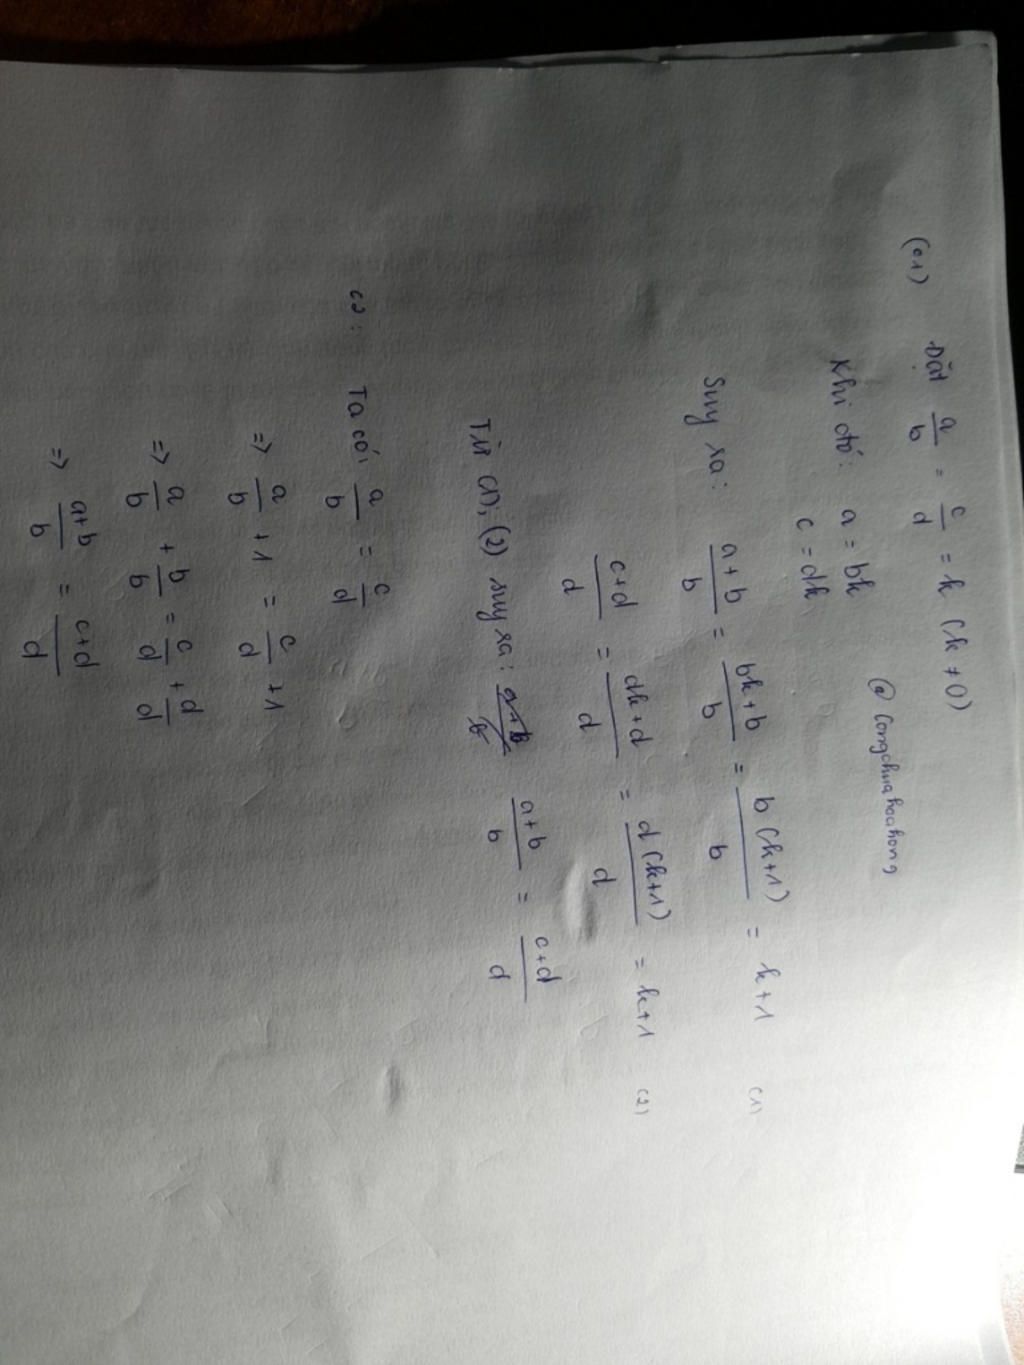 (c1) Đặt a/b = c/d = k (k ≠ 0)
Khi đó: a = bk
c = dk
@ congchuahoahong
Suy ra: a+b/b = bk+b/b = b(k+1)/b = k+1 (1)
c+d/d = dk+d/d = d(k+1)/d = k+1 (2)
Từ (1); (2) suy ra: a+b/b a+b/b = c+d/d
c2: Ta có: a/b = c/d
=> a/b + 1 = c/d + 1
=> a/b + b/b = c/d + d/d
=> a+b/b = c+d/d